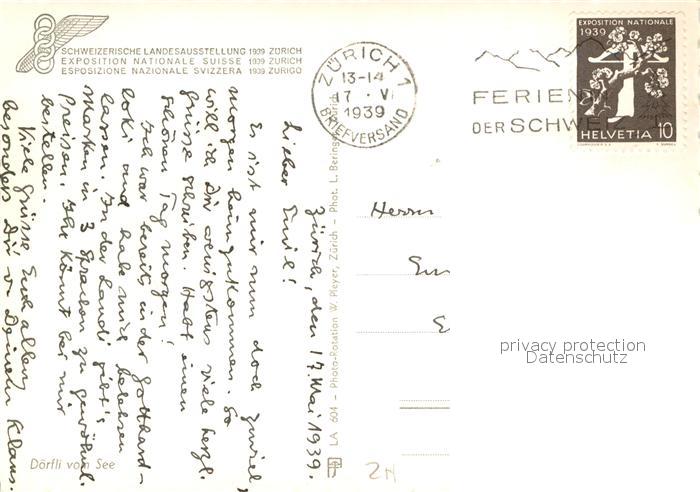 SCHWEIZERISCHE LANDESAUSSTELLUNG 1939 ZÜRICH
EXPOSITION NATIONALE SUISSE 1939 ZURICH
ESPOSIZIONE NAZIONALE SVIZZERA 1939 ZURIGO
ZÜRICH 1
13-14
17. V.
1939
BRIEFVERSAND
FERIEN
DER SCHWEI
EXPOSITION NATIONALE
1939
HELVETIA 10
Zürich, den 17. Mai 1939.
Lieber Emil!
Es ist mir nun doch zuviel,
morgen heimzukommen. So
will ich Dir wenigstens viele herzl.
Grüsse schreiben. Habt einen
schönen Tag morgen!
Ich war bereits in der Gotthard-
loki und habe mich belehren
lassen. In der Landi gibt's
Marken in 3 Sprachen zu gewöhnl.
Preisen. Ihr könnt bei mir
bestellen.
Viele Grüsse Euch allen,
besonders Dir v. Deinem Klaus.
Dörfli vom See
LA 604 – Photo-Rotation W. Pleyer, Zürich – Phot. L. Beringer, Zürich
Herrn
privacy protection
Datenschutz
ZH